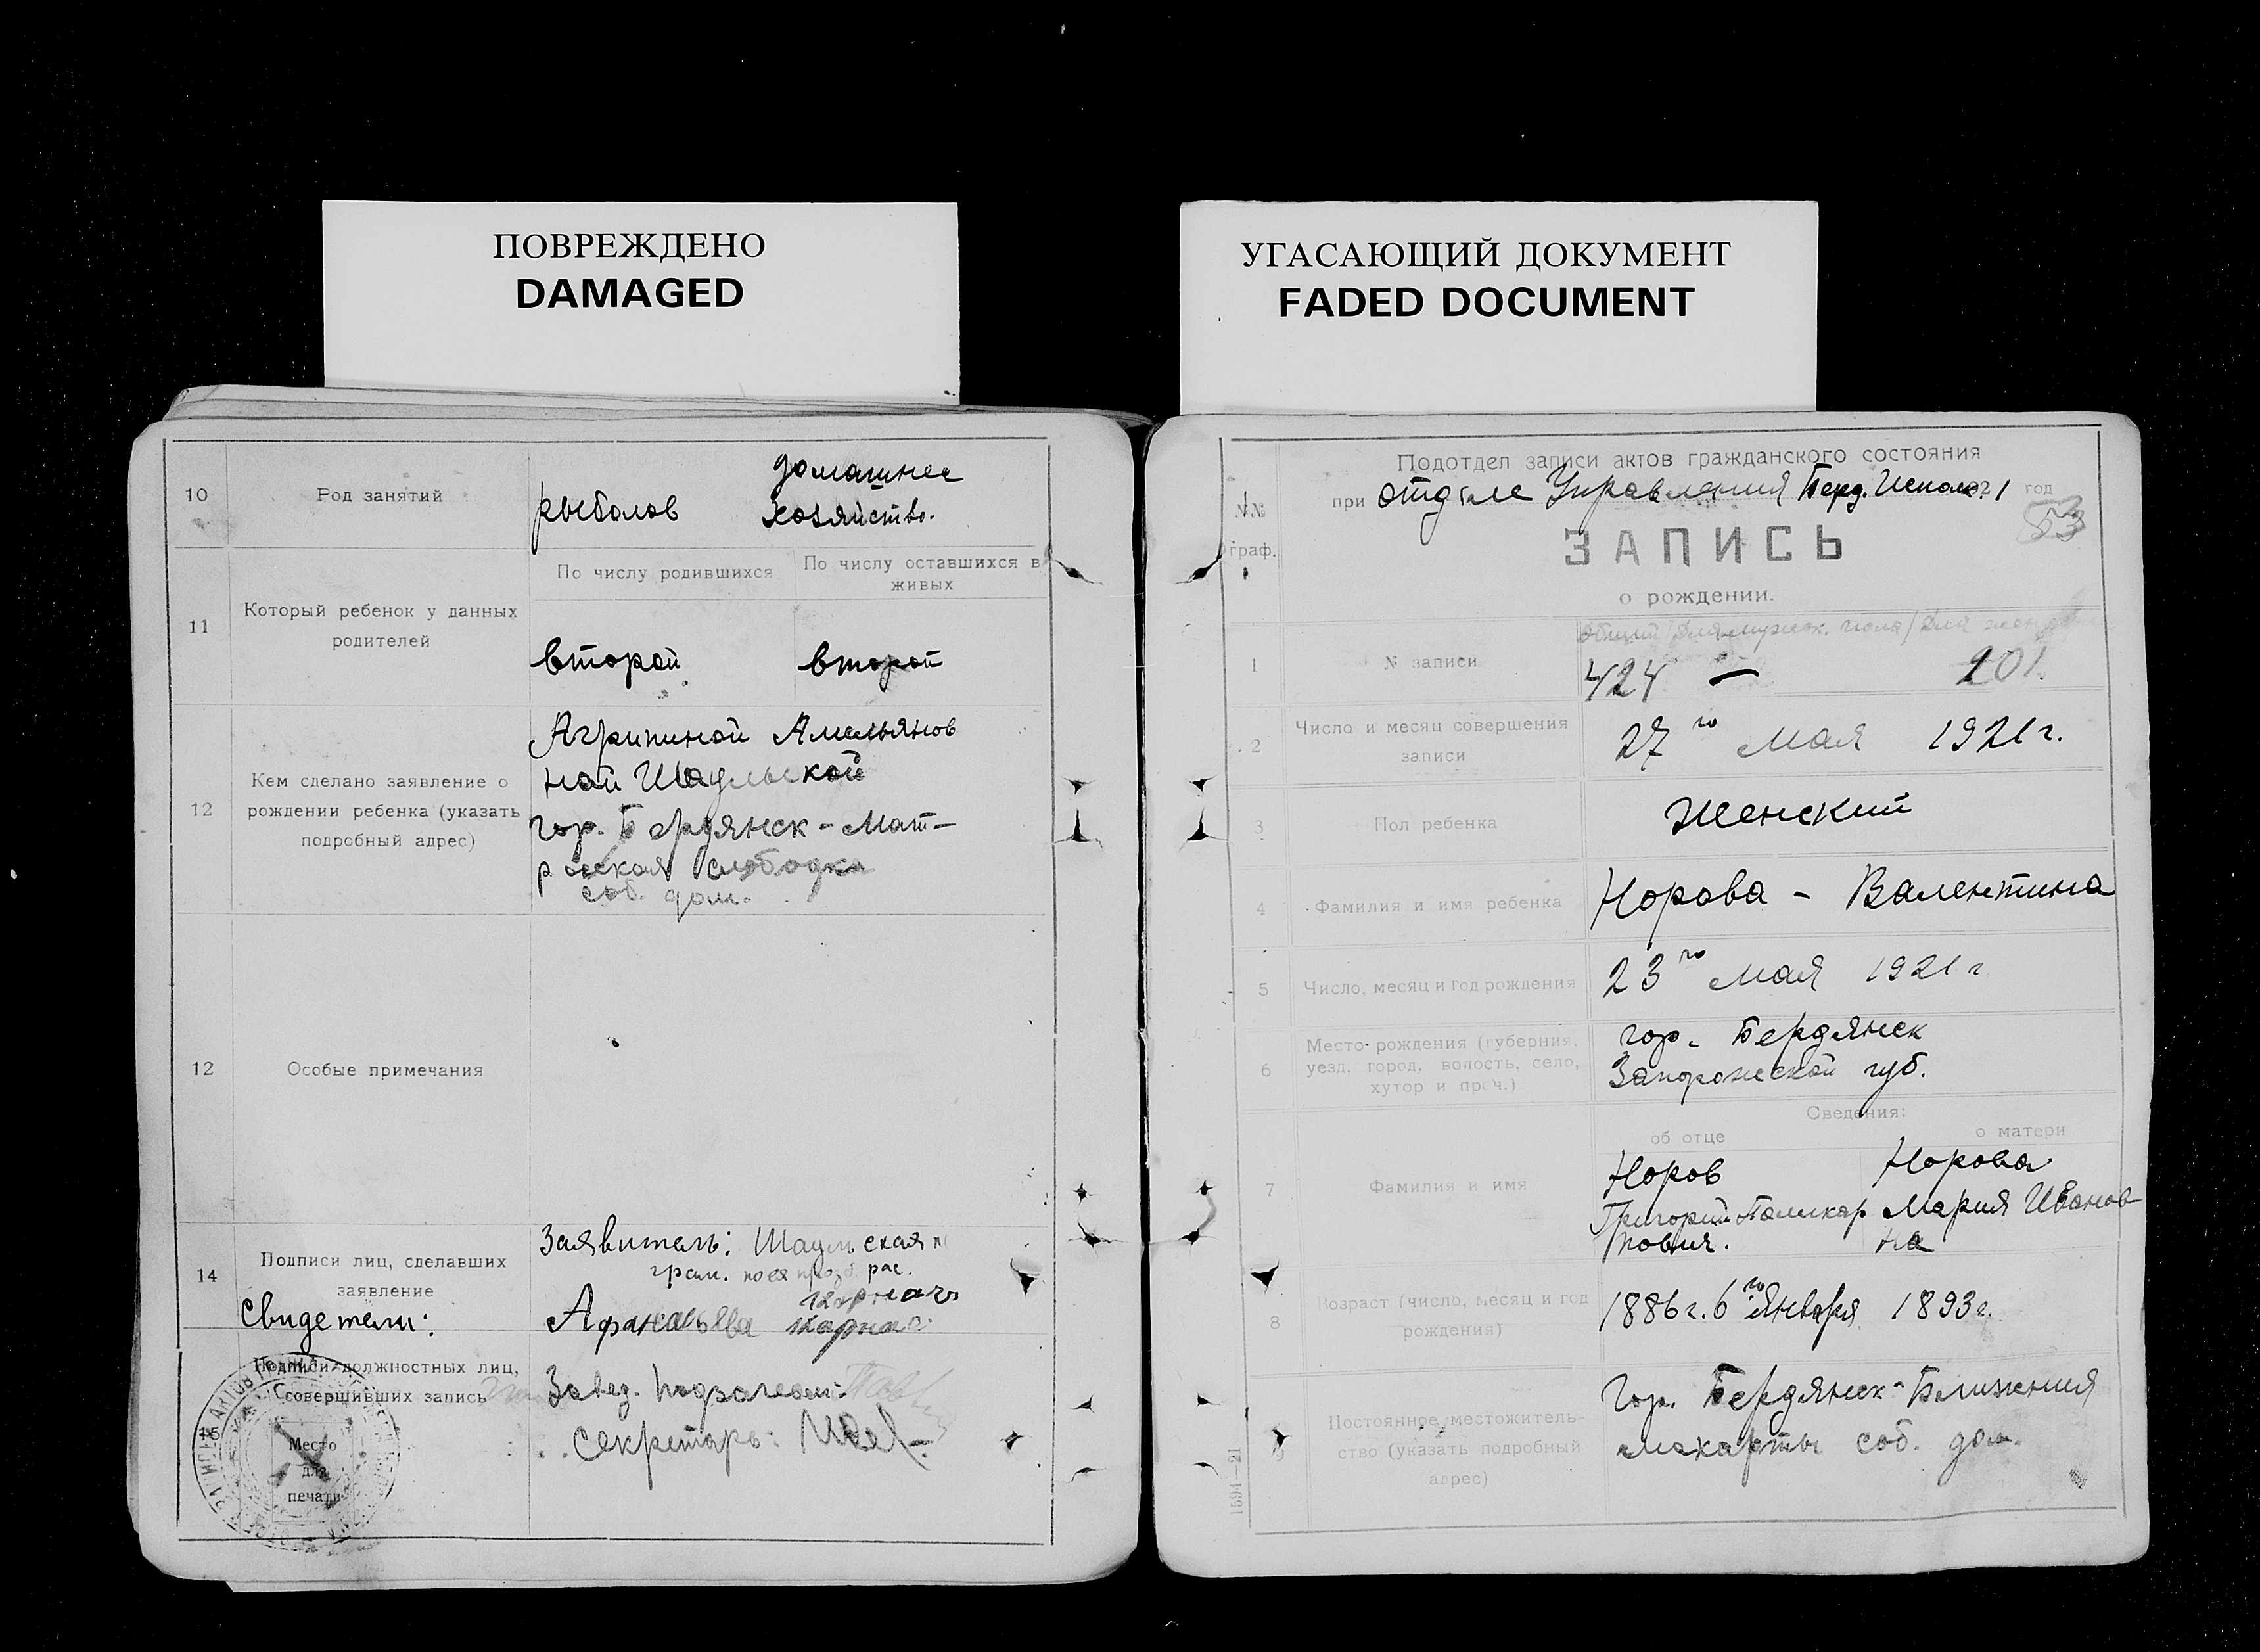 ПОВРЕЖДЕНО
DAMAGED
УГАСАЮЩИЙ ДОКУМЕНТ
FADED DOCUMENT
10
Род занятий
рыболов
домашнее
хозяйство.
11
Который ребенок у данных
родителей
По числу родившихся
По числу оставшихся в
живых
второй
второй
12
Кем сделано заявление о
рождении ребенка (указать
подробный адрес)
Агрипиной Амельянов
ной Шаульской
гор. Бердянск - Мат-
роская слободка
соб. дом.
12
Особые примечания
14
Подписи лиц, сделавших
заявление
Свидетели:
Заявитель: Шаульская
грам.
рас.
Афанасьева
15
Подписи должностных лиц,
совершивших запись
Место
для
печати
Завед. Подотделом:
Секретарь:
№№
граф.
Подотдел записи актов гражданского состояния
при отделе Управления Берд. Исполк. 1 год
53
ЗАПИСЬ
о рождении.
1
№ записи
424 — 201.
2
Число и месяц совершения
записи
27 го мая 1921 г.
3
Пол ребенка
Женский
4
Фамилия и имя ребенка
Норова - Валентина
5
Число, месяц и год рождения
23 го мая 1921 г
6
Место рождения (губерния,
уезд, город, волость, село,
хутор и проч.)
гор. Бердянск
Запорожской губ.
Сведения:
об отце
о матери
7
Фамилия и имя
Норов
Григорий Поликар
пович.
Норова
Мария Иванов-
на
8
Возраст (число, месяц и год
рождения)
1886 г. 6 го Января
1893 г.
9
Постоянное местожитель-
ство (указать подробный
адрес)
Гор. Бердянск - Ближния
макорты соб. дом.
1594—21